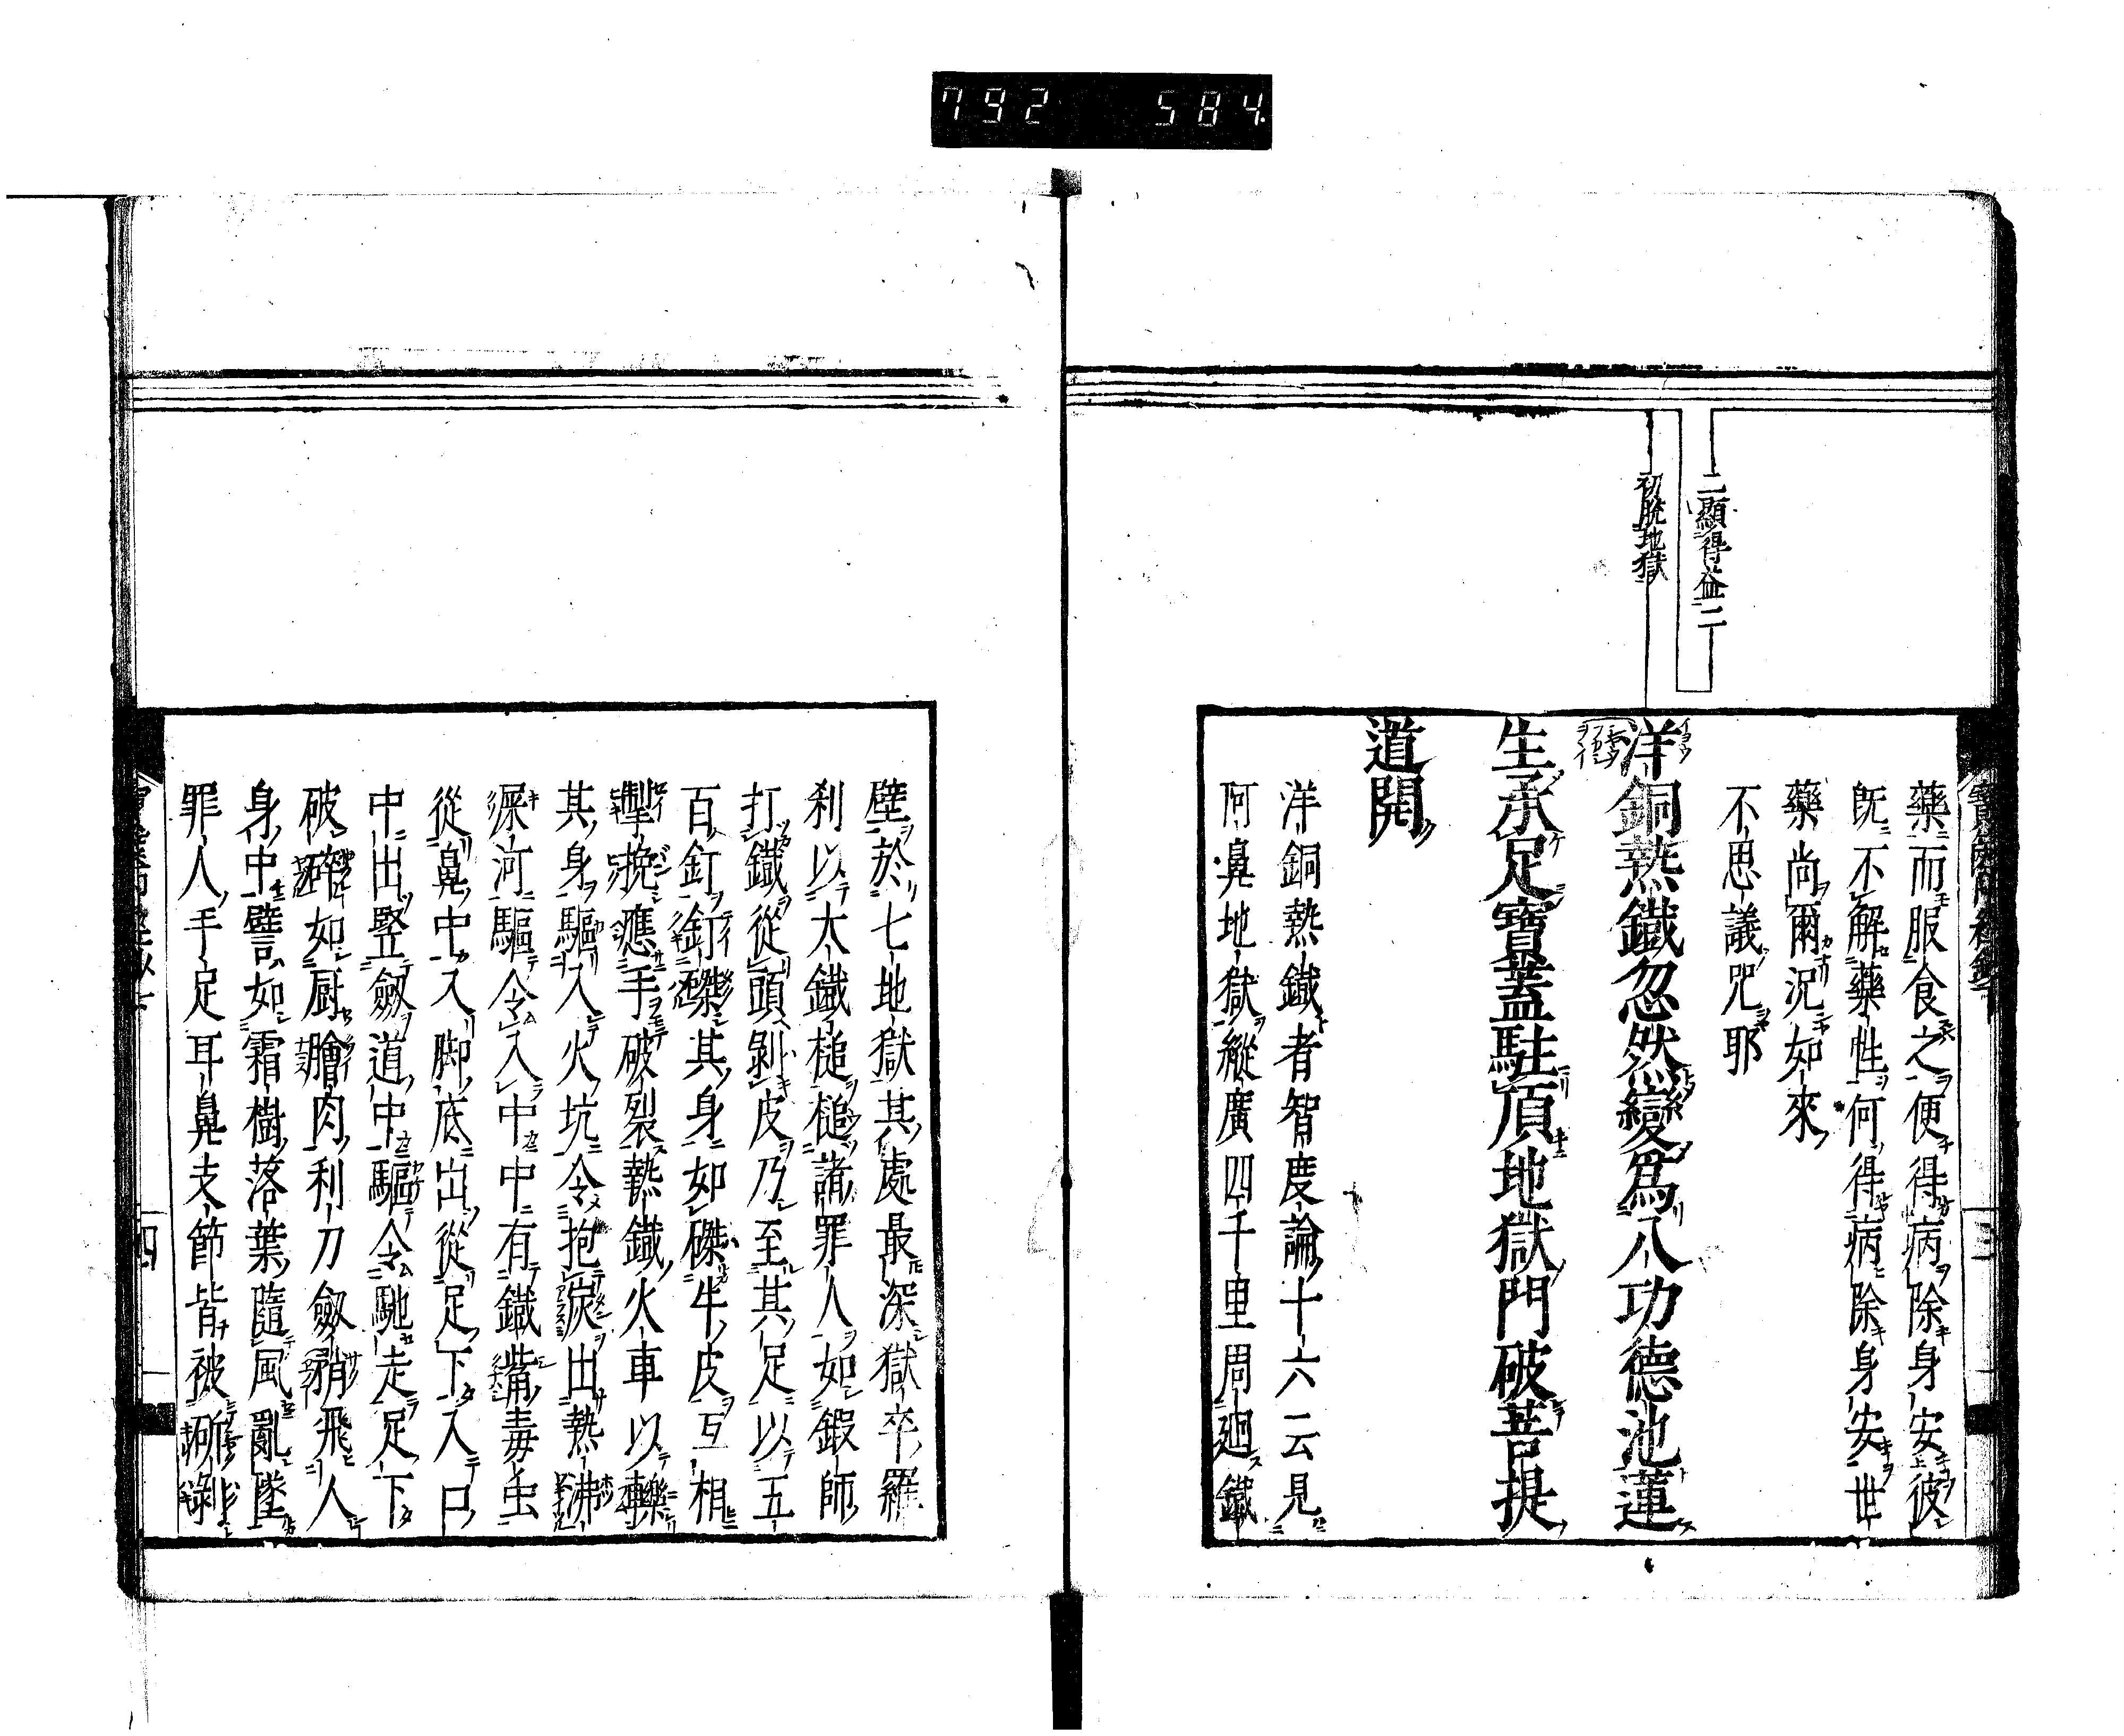 792 584
二顯得益二
初脱地獄
藥而服食之便得病除身安彼
既不解藥性何得病除身安世
藥尚爾況如來
不思議咒耶
洋銅熱鐵忽然變爲八功德池蓮
生承足寶蓋駐頂地獄門破菩提
道開
洋銅熱鐵者智度論十六云見
阿鼻地獄縱廣四千里周迴鐵
壁於七地獄其處最深獄卒羅
刹以大鐵槌槌諸罪人如鍛師
打鐵從頭剝皮乃至其足以五
百釘釘磔其身如磔牛皮互相
掣挽應手破裂熱鐵火車以轢
其身驅入火坑令抱炭出熱沸
屎河驅令入中中有鐵觜毒虫
從鼻中入脚底出從足下入口
中出竪劒道中驅令馳走足下
破碎如厨膾肉利刀劒矟飛入
身中譬如霜樹落葉隨風亂墜
罪人手足耳鼻支節皆被斫剥
三
四